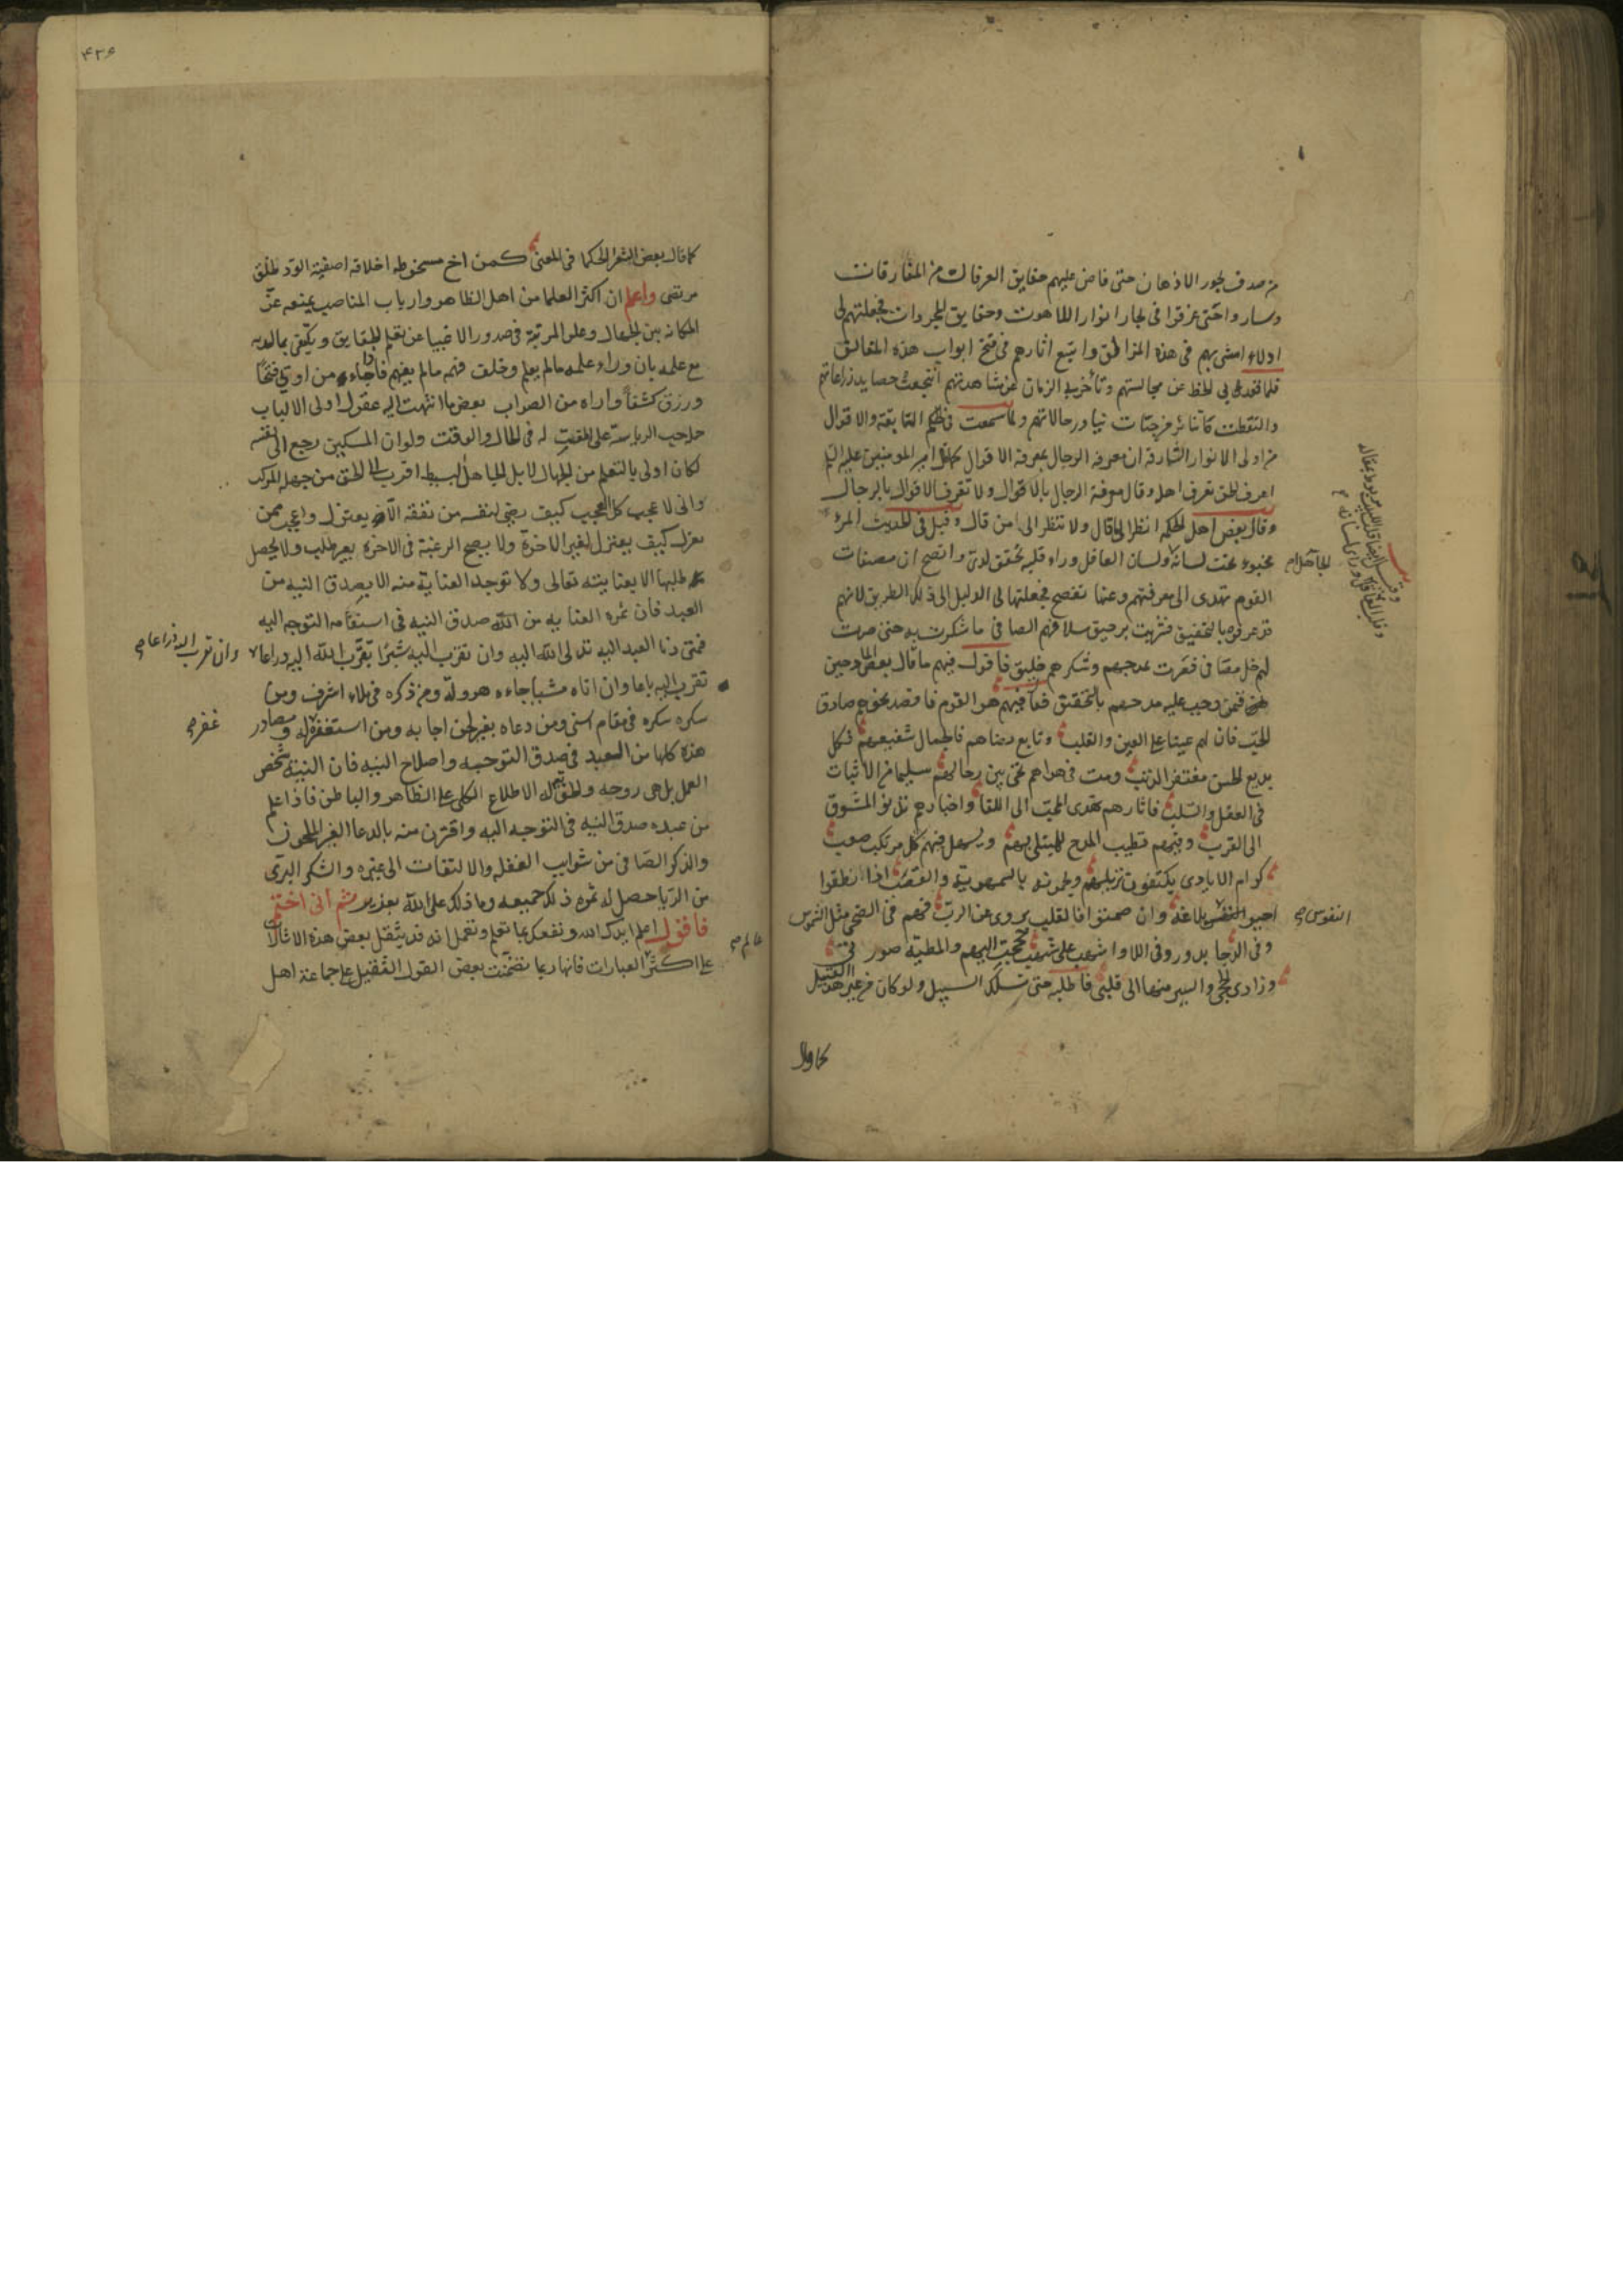 من صدف بحور الاذهان حتى فاض عليهم حقايق العرفان من المفارقات
وساروا حتى غرقوا في بحار انوار اللاهوت وحقايق المجردات فجعلتهم لي
ادلاء امشى بهم في هذه المزالق واتبع اثارهم في فتح ابواب هذه المغالق
فلما قعد بي الحظ عن مجالستهم وتأخر بي الزمان عن مشاهدتهم انتجعت حصايد زراعاتهم
والتقطت من جنات ورحالاتهم ولما سمعت والاقوال
من اولى الانوار الشارقة ان معرفة الرجال بمعرفة الاقوال امير المومنين عليه السلم
اعرف الحق تعرف اهله وقال معرفة الرجال بالاقوال ولا تعرف الاقوال بالرجال
وقال بعض اهل الحكمة انظر الى ما قال ولا تنظر الى من قال وقيل في الحديث المرء
مخبوء تحت لسانه ولسان العاقل وراء قلبه تحقق لدى واتضح ان مصنفات
القوم تهدى الى معرفتهم وعنها تفصح فجعلتها لي الدليل الى ذلك الطريق لانهم
بالتحقيق فشربت برحيق سلافهم الصافى ما سكرت به حتى صرت
لهم خل مصافى ففزت بمدحهم وشكرهم خليق فاقول فيهم ما قال بعض المادحين
فمن وجب عليه مدحهم بالتحقيق هم القوم فاقصد نحوهم صادق
الحب فان لهم عينا على العين والقلب وتابع رضاهم فالجمال شفيعهم فكل
بديع الحسن مغتفر الذنب ومت في هواهم تحيى بين رجالهم سليما من الاثبات
في العقل والسلب فاثارهم تهدى المحب الى اللقا واخبارهم تدنو المشوق
الى القرب وفيهم يطيب المدح للمبتلى بهم ويسهل فيهم كل مرتكب صعب
كرام الايادى يكتفون نزيلهم اذا نطقوا
احيوا النفوس بلاغة وان صمتوا فالقلب يروى عن الرب فهم في الضحى مثل الشموس
وفى الدجا بدور وفى اللاوا شهب على شهب محجتى اليهم والمطية
وزادى لحجى والسير منها الى قلبى فاطلبه حتى تسلك السبيل ولو كان من غير هذا القبيل
الجاهل
النفوس
كما قال
۴۳۶
كما قال بعض الشعر الحكما في المعنى كم من اخ مسخوطه اخلاقه اصفيته الود لخلق
مرتضى واعلم ان اكثر العلما من اهل الظاهر وارباب المناصب يمنعه عن
المكانه بين الجهال وعلو المرتبة في صدور الاغبيا عن تعلم الحقايق ويكتفى بما لديه
مع علمه بان وراء علمه ما لم يعلم وخلف فهمه ما لم يفهم فاذا جاءه من اوتى فتحا
ورزق كشفا واراه من الصواب بعض ما انتهت اليه عقول اولى الالباب
حب الرياسة على المقت له في الحال والوقت ولو ان المسكين رجع الى نفسه
لكان اولى بالتعلم من الجهال لا بل للجاهل البسيط اقرب الى الحق من جهله المركب
وانى لاعجب كل العجب كيف رضى لنفسه من تفقه بعتزل واعجب ممن
يعزل كيف يعتزل لغير الاخرة ولا يصح الرغبة في الاخرة بغير طلب ولا يحصل
طلبها الا بعنايته تعالى ولا توجد العناية منه الا بصدق النيه من
العبد فان ثمره العنايه من الله صدق النيه في استقامه التوجه اليه
فمتى دنا العبد اليه تدلى الله اليه وان تقرب اليه شبرا تقرب الله اليه ذراعا
وان تقرب اليه ذراعا
تقرب اليه باعا وان اتاه مشيا جاءه هرولة ومن ذكره في ملاء اشرف ومن
شكره شكره في مقام اسنى ومن دعاه بغير لحن اجابه ومن استغفره له ومصادر
غفر
هذه كلها من العبد في صدق التوجه واصلاح النيه فان النية شخص
العمل بل هى روحه الاطلاع الكلى على الظاهر والباطن فاذا علم
من عبده صدق النيه في التوجه اليه واقترن منه بالدعا الغير الملحون
والذكر الصافى من شوايب الغفله والالتفات الى غيره والشكر البرى
من الريا حصل له ثمره ذلك جميعه وما ذلك على الله بعزيز ثم انى اختم
فاقول اعلم ايدك الله ونفعك بما تعلم وتعمل انه قد يثقل بعض هذه
على اكثر العبارات فانها ربما تضمنت بعض القول الثقيل على جماعة اهل
عالم